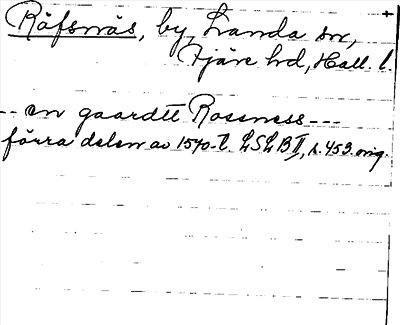 Räfsnäs, by, Landa sn,
Fjäre hd, Hall. l.
-- en gaardtt Rossness ---
förra delen av 1540-t. LSLB II, s. 453. orig.